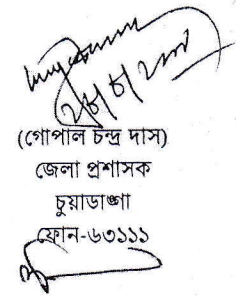 (গোপাল চন্দ্র দাস)
জেলা প্রশাসক
চুয়াডাঙ্গা
ফোন-৬৩১১১